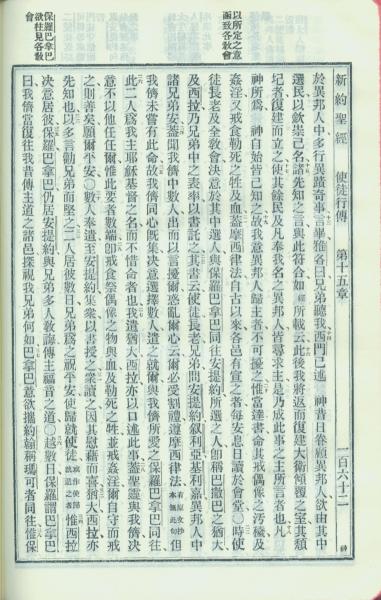 以所定之意
函致各敎會
保羅巴拿巴
欲往見各敎
會
新約聖經 使徒行傳 第十五章 一百六十二
於異邦人中多行異蹟奇事○畢雅各曰兄弟聽我西門已述 神昔日眷顧異邦人欲由其中
選民以歸崇己名諸先知之言與此符合如經所載云此後我將返而復建大衛傾覆之室其頹
圮者復建而立之使其餘民及凡奉我名之異邦人皆尋求主是乃成此事之主所言者也凡
神所爲 神自始皆已知之故我意異邦人歸主者不可擾之惟當達書命其戒偶像之汚穢及
姦淫又戒食勒死之牲及血蓋摩西律法自古以來各邑有宣之者每安息日讀於會堂○時使
徒長老及全敎會決意於其中選人與保羅巴拿巴同往安提約所選之人卽稱巴撒巴之猶大
及西拉乃兄弟中之表率以書託之其書云使徒長老兄弟問安提約叙利亞基利嘉異邦人中
諸兄弟安蓋聞我儕中數人出而以言擾爾惑亂爾心云爾必受割禮遵摩西律法 但
我儕未嘗有此命故我儕同心旣集決意選擇數人遣之就爾與我儕所愛之保羅巴拿巴同往
此二人爲我主耶穌基督之名而不惜命者也我遣猶大西拉亦以口述此事蓋聖靈與我儕決
意不以他任任爾惟此要者數端卽戒食祭偶像之物與血及勒死之牲並戒姦淫爾自守而戒
之則善矣願爾平安○數人奉遣至安提約集衆以書授之衆讀之因其慰藉而喜猶大西拉亦
先知也以多言勸兄弟而堅之二人居彼數日兄弟爲之祝平安使歸就使徒 惟西拉
決意居彼保羅巴拿巴仍居安提約與兄弟多人敎誨傳主福音之道○越數日保羅謂巴拿巴
曰我儕當復往我昔傳主道之諸邑探視我兄弟何如巴拿巴意欲攜約翰稱瑪可者同往惟保